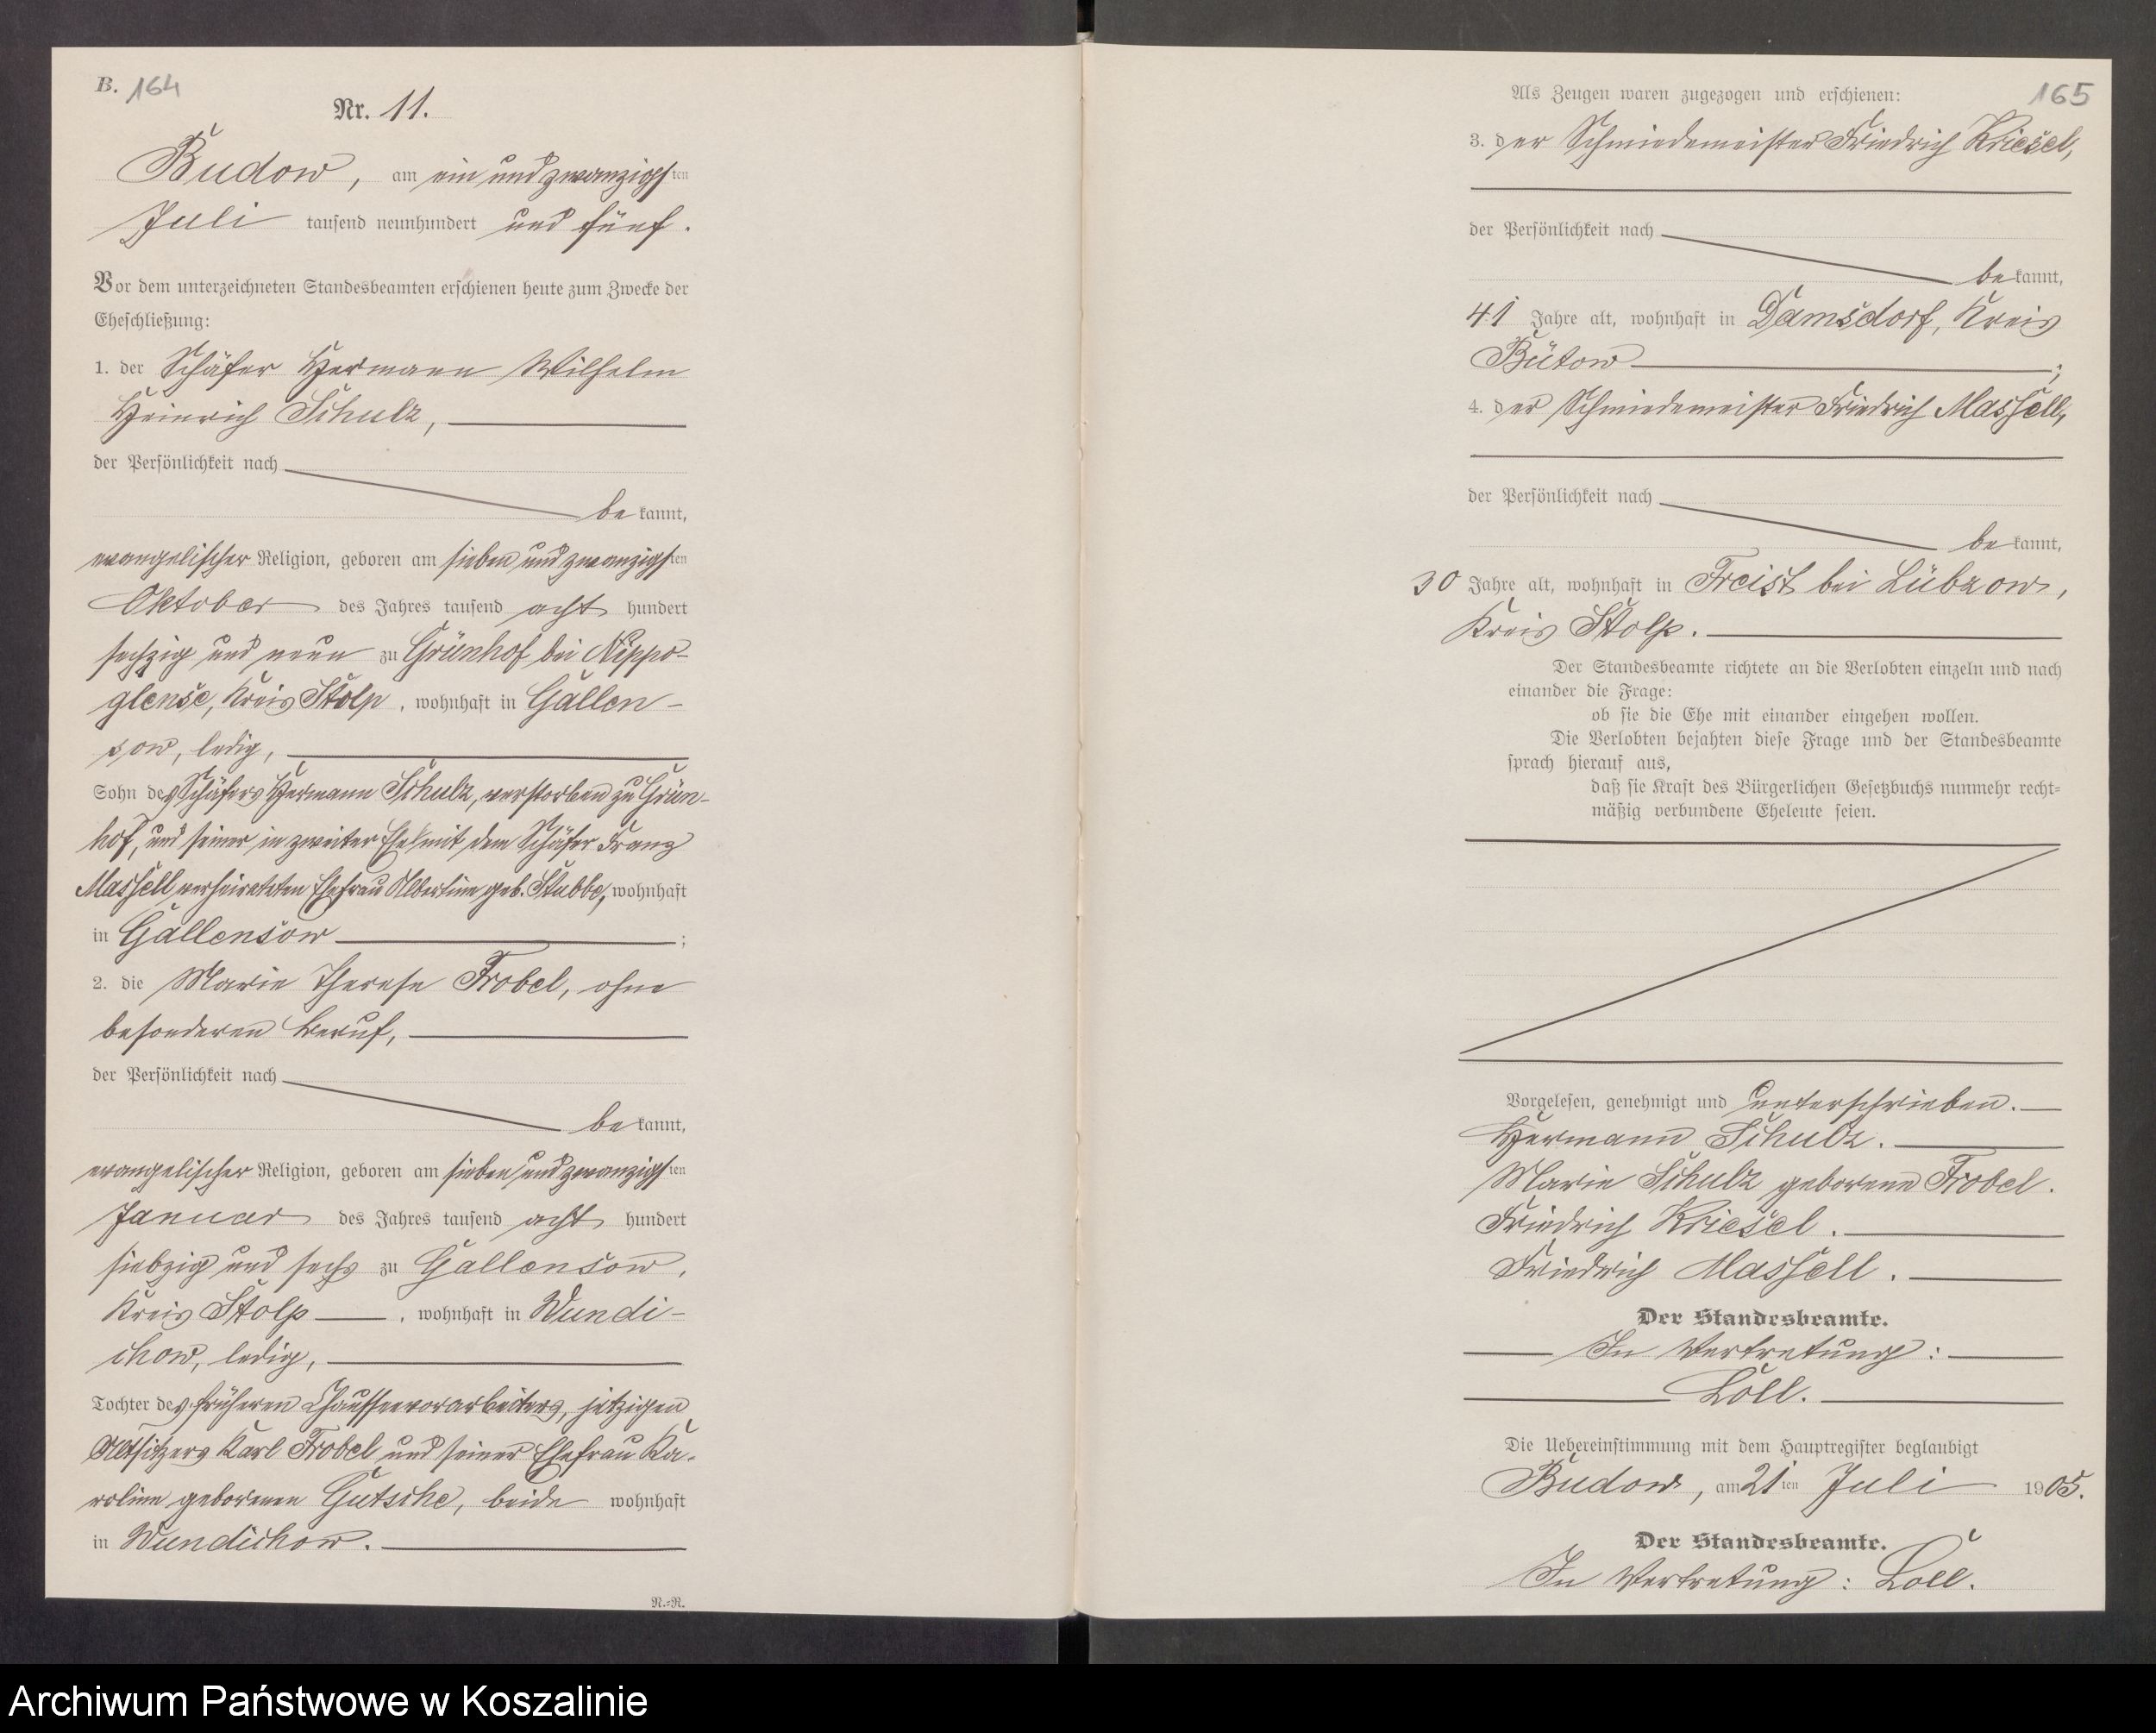 B. 164
Nr. 11.
Budow, am ein und zwanzigsten
Juli tausend neunhundert und fünf.
Vor dem unterzeichneten Standesbeamten erschienen heute zum Zwecke der
Eheschließung:
1. der Schäfer Hermann Wilhelm
Heinrich Schulz,
der Persönlichkeit nach
bekannt,
evangelischer Religion, geboren am sieben und zwanzigsten
Oktober des Jahres tausend acht hundert
sechzig und neun zu Grünhof bei Nippo-
glense, Kreis Stolp, wohnhaft in Gallen-
sow, ledig,
Sohn des Schäfers Hermann Schulz, verstorben zu Grün-
hof, und seiner in zweiter Ehe mit dem Schäfer Franz
Massell verheirateten Ehefrau Albertine geb. Stubbe, wohnhaft
in Gallensow ;
2. die Marie Therese Frobel, ohne
besonderen Beruf,
der Persönlichkeit nach
bekannt,
evangelischer Religion, geboren am sieben und zwanzigsten
Januar des Jahres tausend acht hundert
siebzig und sechs zu Gallensow,
Kreis Stolp, wohnhaft in Wundi-
chow, ledig,
Tochter des früheren Chausseevorarbeiters, jetzigen
Altsitzers Karl Frobel und seiner Ehefrau Ka-
roline geborenen Gutsche, beide wohnhaft
in Wundichow.
N.-R.
165
Als Zeugen waren zugezogen und erschienen:
3. der Schmiedemeister Friedrich Kriesel,
der Persönlichkeit nach
bekannt,
41 Jahre alt, wohnhaft in Damsdorf, Kreis
Bütow ;
4. der Schmiedemeister Friedrich Massell,
der Persönlichkeit nach
bekannt,
30 Jahre alt, wohnhaft in Freist bei Lübzow,
Kreis Stolp.
Der Standesbeamte richtete an die Verlobten einzeln und nach
einander die Frage:
ob sie die Ehe mit einander eingehen wollen.
Die Verlobten bejahten diese Frage und der Standesbeamte
sprach hierauf aus,
daß sie Kraft des Bürgerlichen Gesetzbuchs nunmehr recht-
mäßig verbundene Eheleute seien.
Vorgelesen, genehmigt und unterschrieben.
Hermann Schulz.
Marie Schulz geborene Frobel.
Friedrich Kriesel.
Friedrich Massell.
Der Standesbeamte.
In Vertretung:
Loll.
Die Uebereinstimmung mit dem Hauptregister beglaubigt
Budow, am 21ten Juli 1905.
Der Standesbeamte.
In Vertretung: Loll.
Archiwum Państwowe w Koszalinie